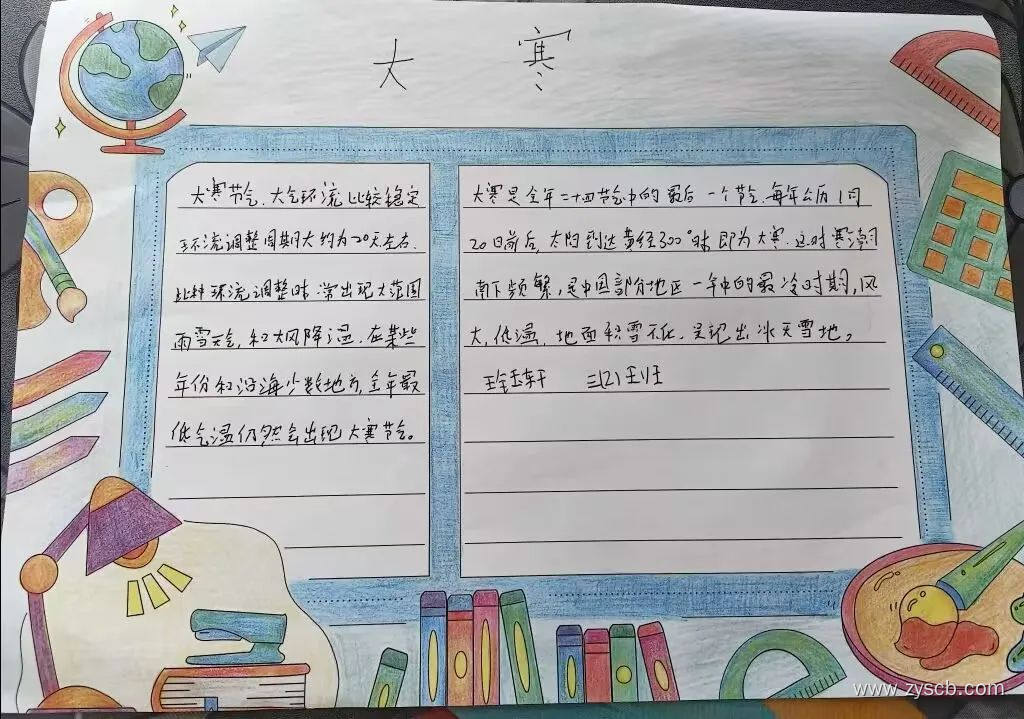 大寒
大寒节气,大气环流比较稳定
环流调整周期大约为20天左右.
此种环流调整时,常出现大范围
雨雪天气,和大风降温.在某些
年份和沿海少数地方,全年最
低气温仍然会出现大寒节气。
大寒是全年二十四节气中的最后一个节气.每年公历1月
20日前后,太阳到达黄经300°时即为大寒.这时寒潮
南下频繁,是中国部分地区一年中的最冷时期,风
大,低温,地面积雪不化,呈现出冰天雪地,
轩 三(2)班
www.zyscb.com